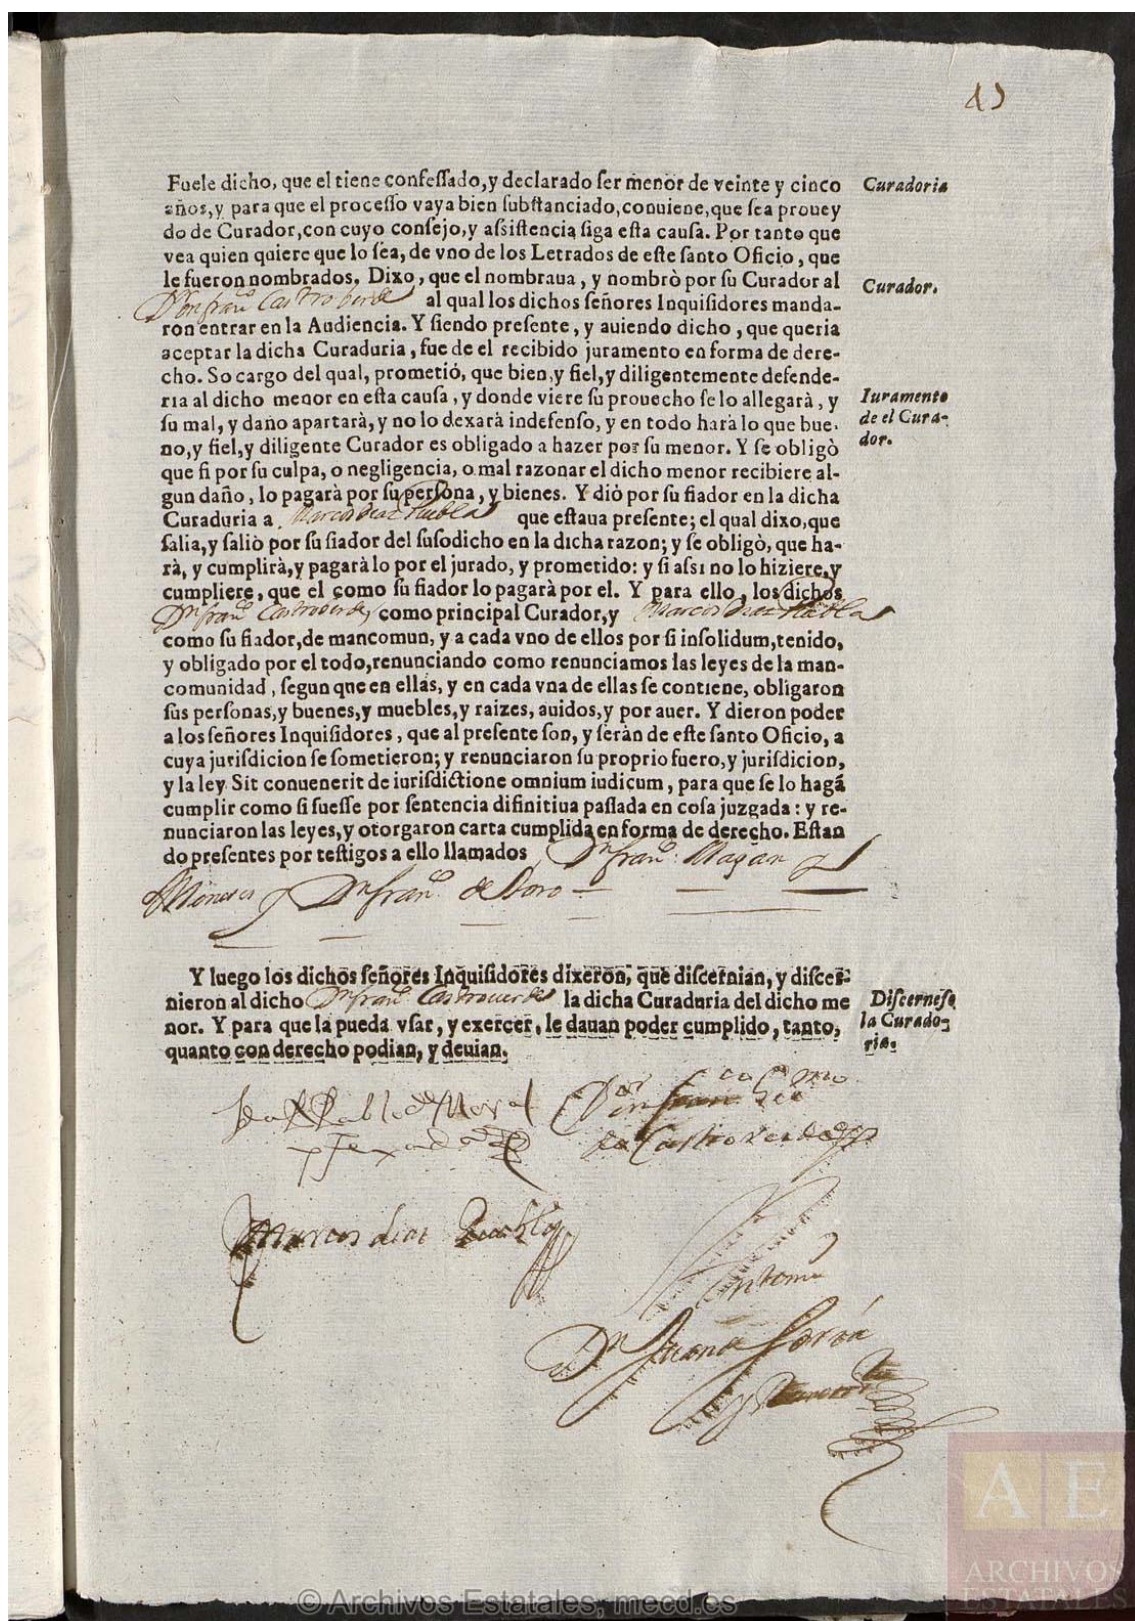 45
Fuele dicho, que el tiene confeſſado, y declarado ſer menor de veinte y cinco
Curadoria
años, y para que el proceſſo vaya bien ſubſtanciado, conuiene, que ſea prouey
do de Curador, con cuyo conſejo, y aſsiſtencia ſiga eſta cauſa. Por tanto que
vea quien quiere que lo ſea, de vno de los Letrados de eſte ſanto Oficio, que
le fueron nombrados. Dixo, que el nombraua, y nombrò por ſu Curador al
Curador.
Dn franco Castroberde al qual los dichos ſeñores Inquiſidores manda-
ron entrar en la Audiencia. Y ſiendo preſente, y auiendo dicho, que queria
aceptar la dicha Curaduria, fue de el recibido juramento en forma de dere-
cho. So cargo del qual, prometió, que bien, y fiel, y diligentemente defende-
ria al dicho menor en eſta cauſa, y donde viere ſu prouecho ſe lo allegarà, y
Iuramento
de el Cura-
dor.
ſu mal, y daño apartarà, y no lo dexarà indefenſo, y en todo harà lo que bue-
no, y fiel, y diligente Curador es obligado a hazer por ſu menor. Y ſe obligò
que ſi por ſu culpa, o negligencia, o mal razonar el dicho menor recibiere al-
gun daño, lo pagarà por ſu perſona, y bienes. Y diò por ſu fiador en la dicha
Curaduria a Marcos diaz Puebla que eſtaua preſente; el qual dixo, que
ſalia, y ſaliò por ſu fiador del ſuſodicho en la dicha razon; y ſe obligò, que ha-
rà, y cumplirà, y pagarà lo por el jurado, y prometido: y ſi aſsi no lo hiziere, y
cumpliere, que el como ſu fiador lo pagarà por el. Y para ello, los dichos
Dn franco Castroverde, como principal Curador, y Marcos diaz Puebla
como ſu fiador, de mancomun, y a cada vno de ellos por ſi inſolidum, tenido,
y obligado por el todo, renunciando como renunciamos las leyes de la man-
comunidad, ſegun que en ellas, y en cada vna de ellas ſe contiene, obligaron
ſus perſonas, y buenes, y muebles, y raizes, auidos, y por auer. Y dieron poder
a los ſeñores Inquiſidores, que al preſente ſon, y ſeràn de eſte ſanto Oficio, a
cuya juriſdicion ſe ſometieron; y renunciaron ſu proprio fuero, y juriſdicion,
y la ley Sit conuenerit de iuriſdictione omnium iudicum, para que ſe lo hagã
cumplir como ſi fueſſe por ſentencia difinitiua paſſada en coſa juzgada: y re-
nunciaron las leyes, y otorgaron carta cumplida en forma de derecho. Eſtan
do preſentes por teſtigos a ello llamados Dn franco Magan y
Meneses y Dn franco de Doro
Y luego los dichos ſeñores Inquiſidores dixeron, que diſcernian, y diſcer-
nieron al dicho Dn franco Castroverde la dicha Curaduria del dicho me
Diſcerneſe
la Curado-
ria.
nor. Y para que la pueda vſar, y exercer, le dauan poder cumplido, tanto,
quanto con derecho podian, y deuian.
de Castroverde
Marcos diaz Puebla
Dn Juan
A E
ARCHIVOS
ESTATALES
© Archivos Estatales, mecd.es